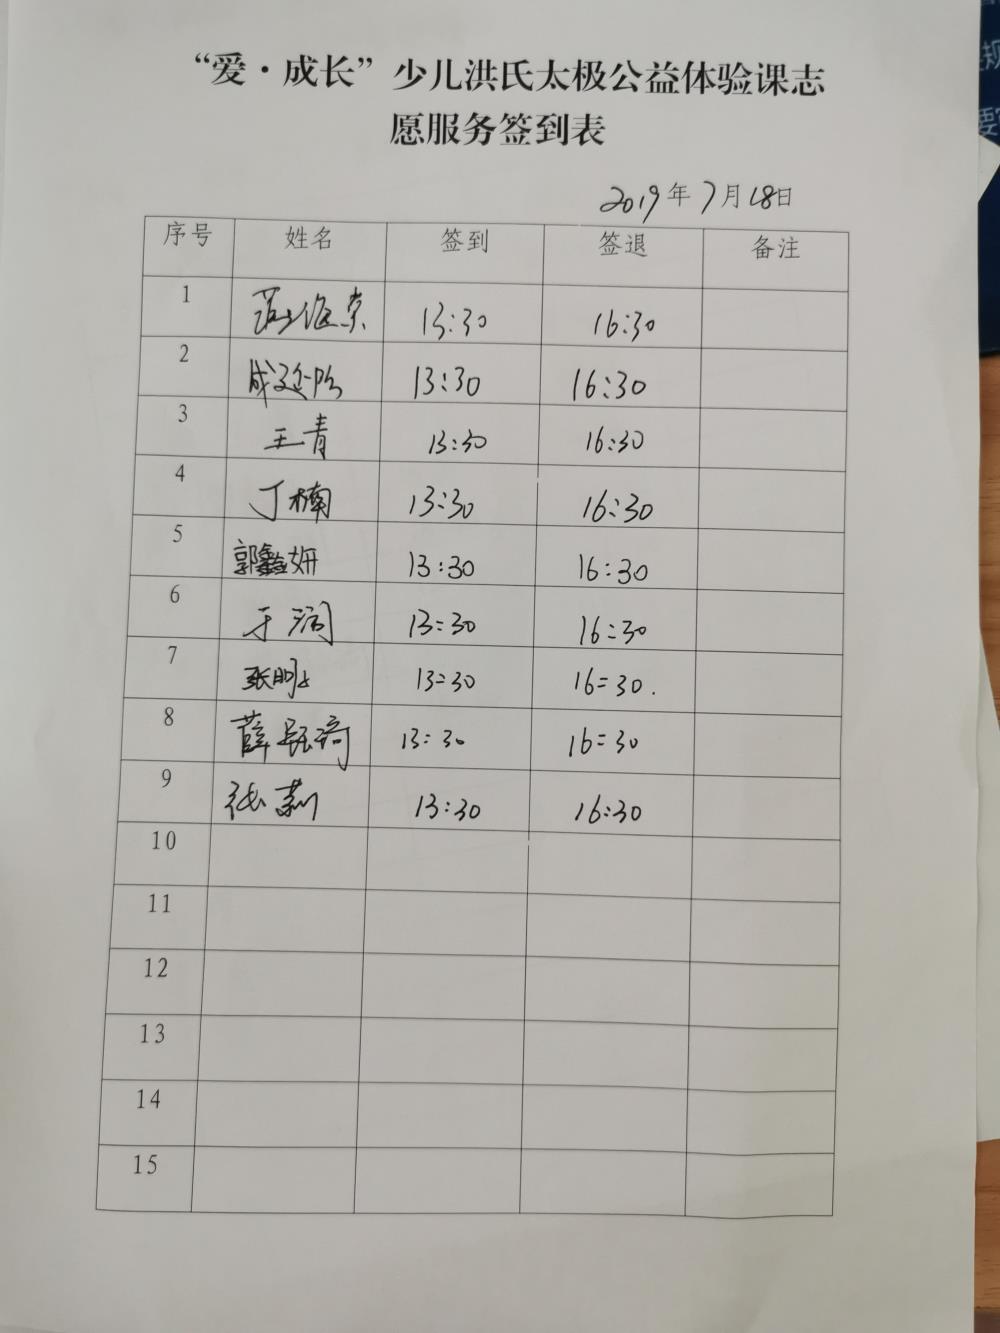 “爱·成长”少儿洪氏太极公益体验课志
愿服务签到表
2019年7月18日
序号 姓名 签到 签退 备注
1 13:30 16:30
2 成廷 13:30 16:30
3 王青 13:30 16:30
4 丁楠 13:30 16:30
5 郭鑫妍 13:30 16:30
6 于润 13:30 16:30
7 张明 13:30 16:30.
8 薛 琦 13:30 16:30
9 张莉 13:30 16:30
10
11
12
13
14
15
规
要